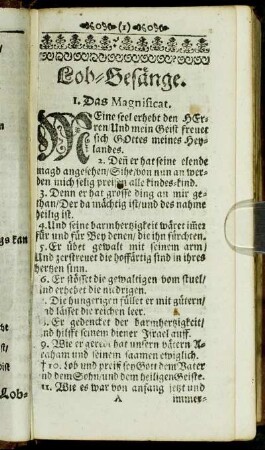 (1)
Lob-Gesänge.
1. Das Magnificat.
Meine seel erhebt den HEr-
ren/Und mein Geist freuet
sich GOttes meines Hey-
landes.
2. Deñ er hat seine elende
magd angesehen/Sihe/von nun an wer-
den mich selig preisen alle kindes-kind.
3. Denn er hat grosse ding an mir ge-
than/Der da mächtig ist/und des nahme
heilig ist.
4. Und seine barmhertzigkeit wäret im̃er
für und für Bey denen/die ihn fürchten.
5. Er übet gewalt mit seinem arm/
Und zerstreuet die hoffärtig sind in ihres
hertzen sinn.
6. Er stösset die gewaltigen vom stuel/
und erhebet die nidrigen.
7. Die hungerigen füllet er mit gütern/
und lässet die reichen leer.
8. Er gedencket der barmhertzigkeit/
und hilfft seinem diener Israel auff.
9. Wie er geredt hat unsern vätern A-
braham und seinem saamen ewiglich.
† 10. Lob und preiß sey Gott dem Vater
und dem Sohn/und dem heiligen Geiste.
11. Wie es war von anfang jetzt und
A immer-
gs kan
Lob-